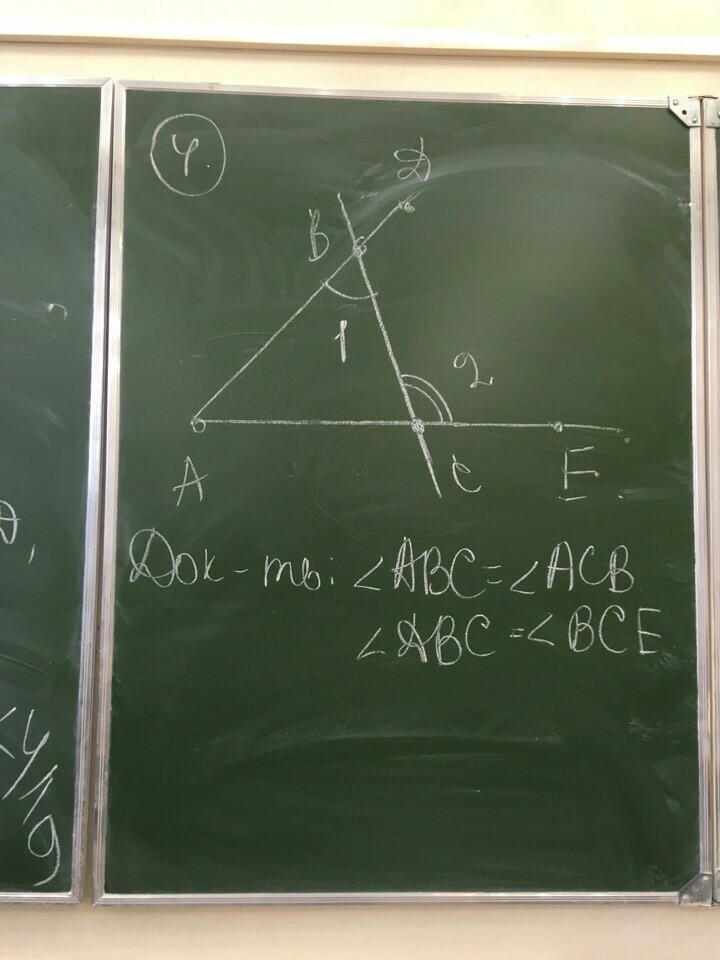 4.
D
B
1
2
A
C
E
Док-ть: ∠ABC=∠ACB
∠ABC=∠BCE